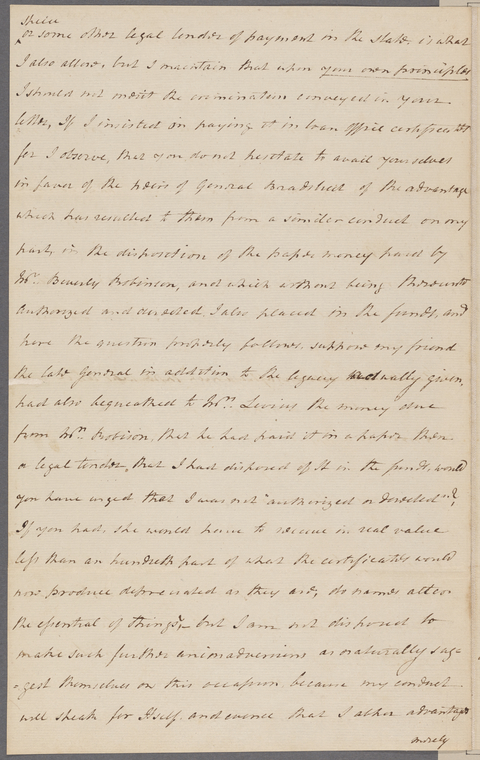 specie
or some other legal tender of payment in the state, is what
I also allow, but I maintain that upon your own principles
I should not merit the crimination conveyed in your
letter, If I insisted on paying it in loan office certificates
for I observe, that you do not hesitate to avail yourselves
in favor of the heirs of General Bradstreet of the advantage
which has resulted to them from a similar conduct on my
part, in the disposition of the paper money paid by
Mr. Beverly Robinson, and which without being thereunto
authorized and directed, I also placed in the funds, and
here the question properly follows. suppose my friend
the late General in addition to the legacy actually given,
had also bequeathed to Mrs. Livius the money due
from Mr. Robison, that he had paid it in a paper then
a legal tender, that I had disposed of It in the funds, would
you have urged that I was not "authorized or directed",
If you had, she would have to receive in real value
less than an hundredth part of what the certificates would
now produce depreciated as they are, do names alter
the essential of things, but I am not disposed to
make such further animadversions as naturally sug-
-gest themselves on this occasion because my conduct
will speak for Itself. and evence that I asked advantage
merely